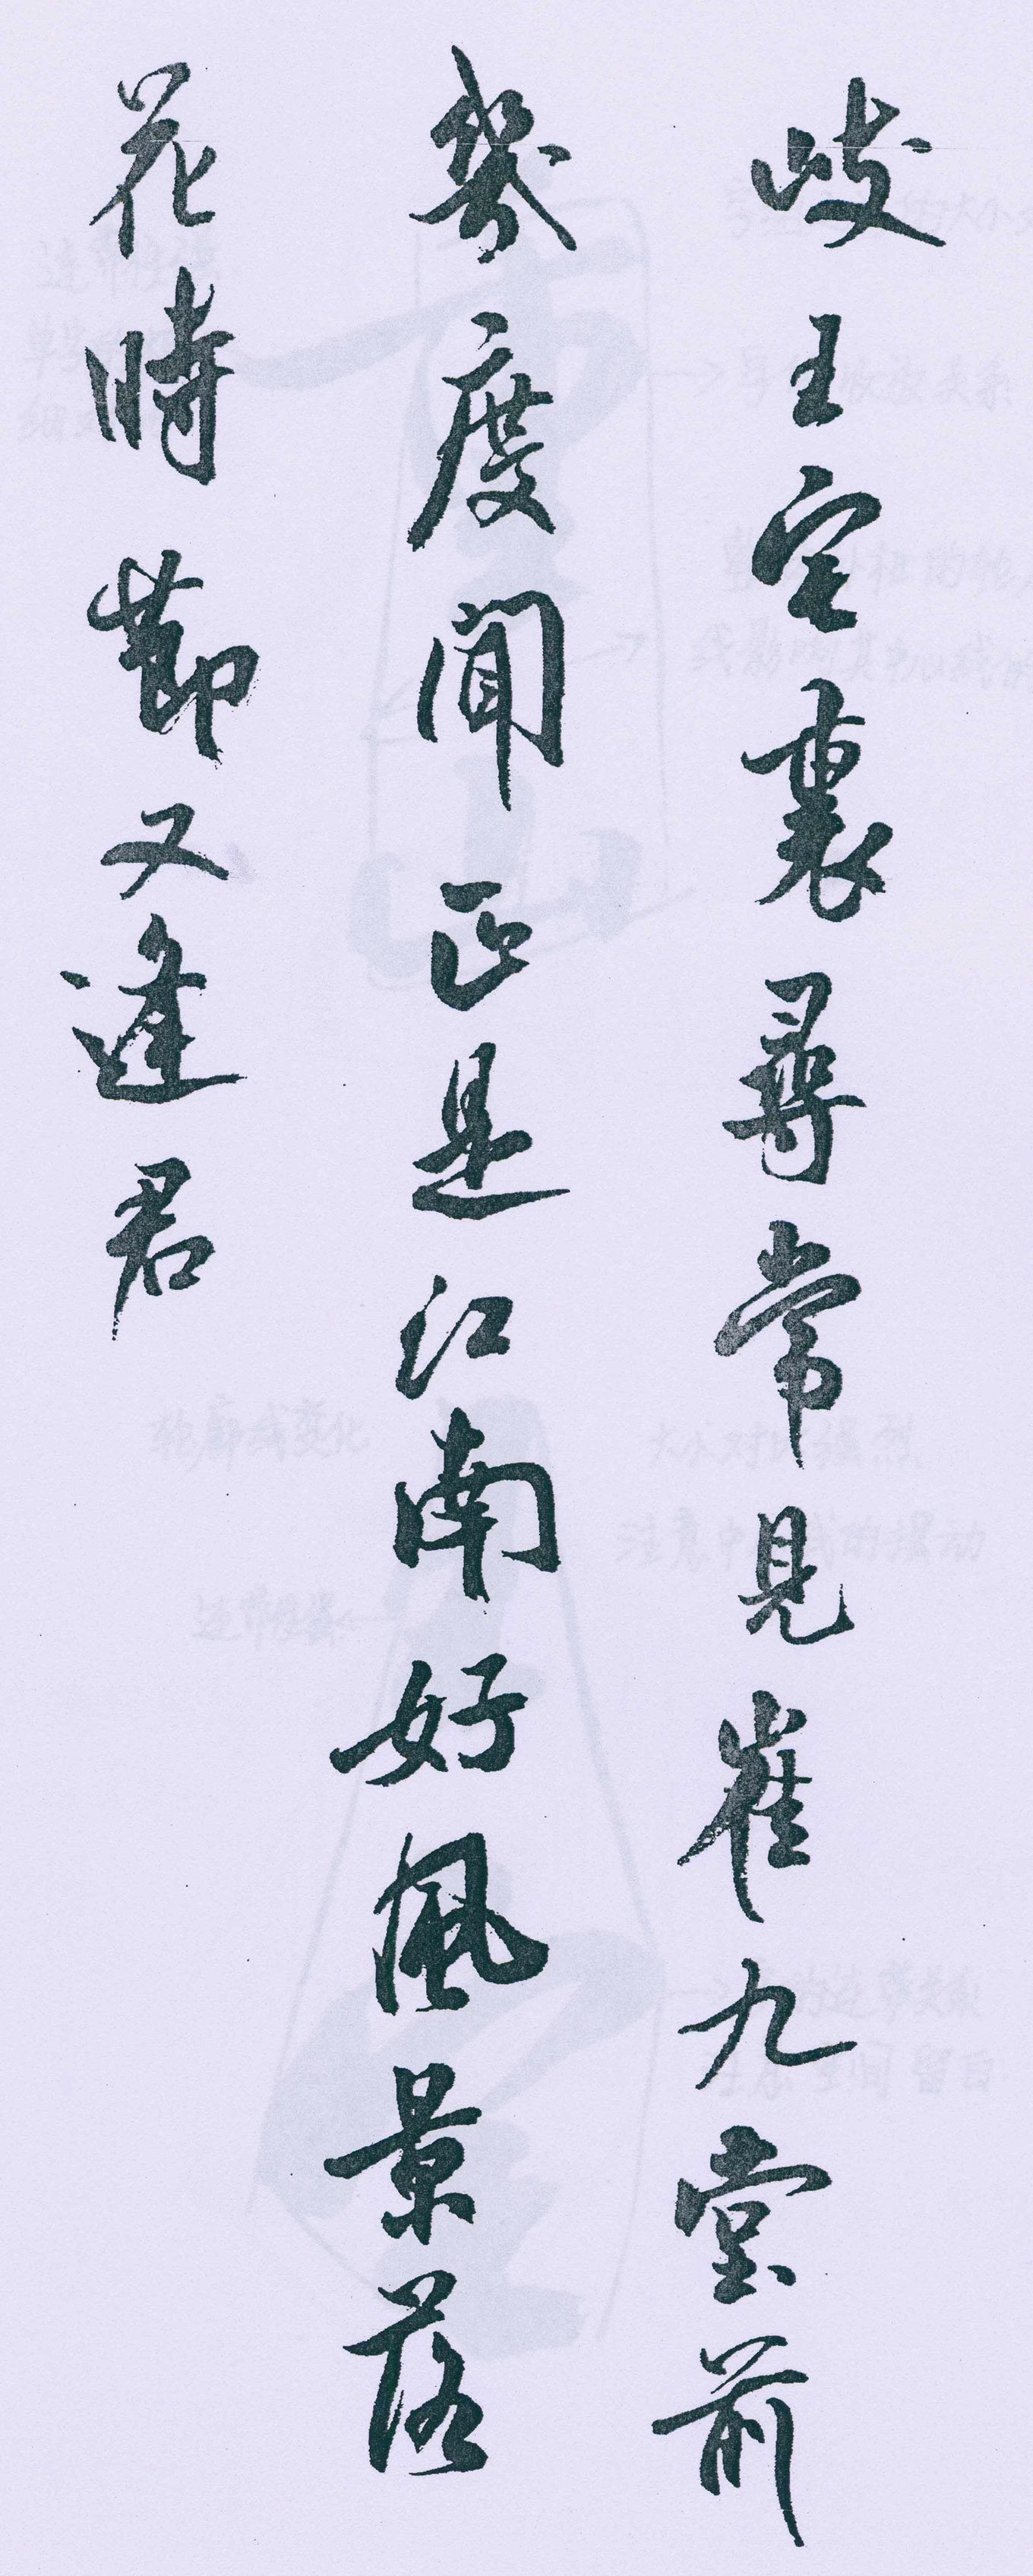 岐王宅裏尋常見崔九堂前
幾度聞正是江南好風景落
花時節又逢君